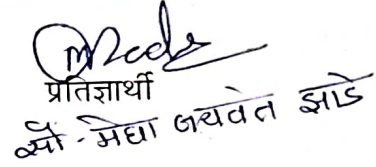 प्रतिज्ञार्थी
सौ. मेघा जयवंत झाडे